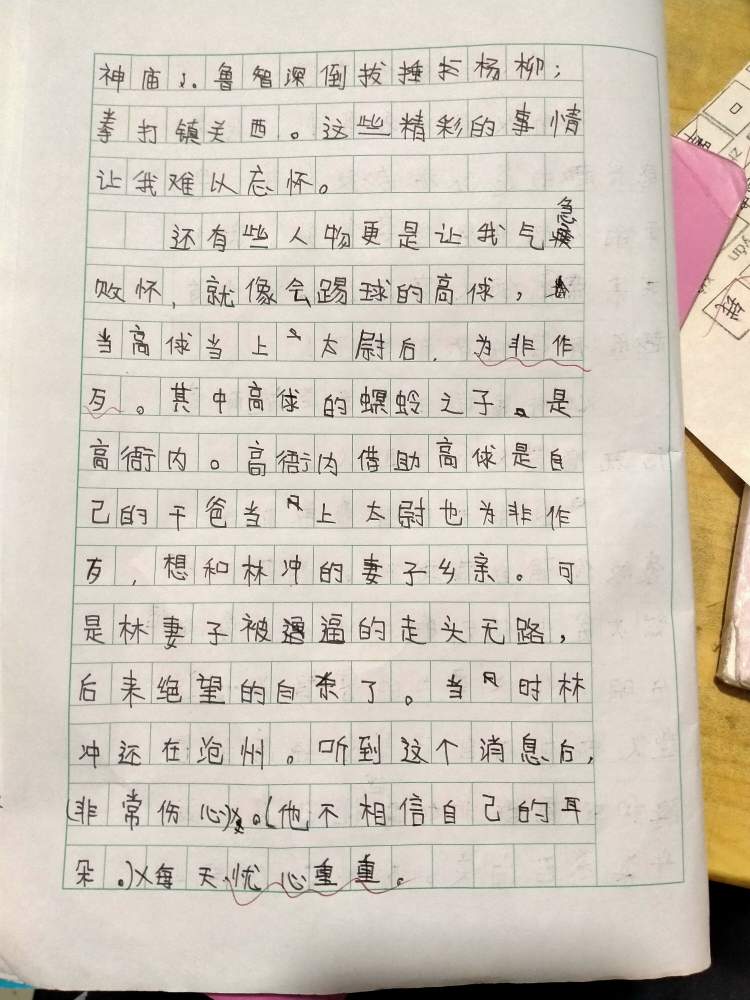 神庙、鲁智深倒拔捶杨柳；
拳打镇关西。这些精彩的事情
让我难以忘怀。
还有些人物更是让我气急
败怀，就像会踢球的高俅，
当高俅当上太尉后，为非作
歹。其中高俅的螟蛉之子是
高衙内。高衙内借助高俅是自
己的干爸当上太尉也为非作
歹，想和林冲的妻子乡亲。可
是林妻子被逼的走头无路，
后来绝望的自杀了。当时林
冲还在沧州。听到这个消息后，
(非常伤心)。(他不相信自己的耳
朵。)每天忧心重重。